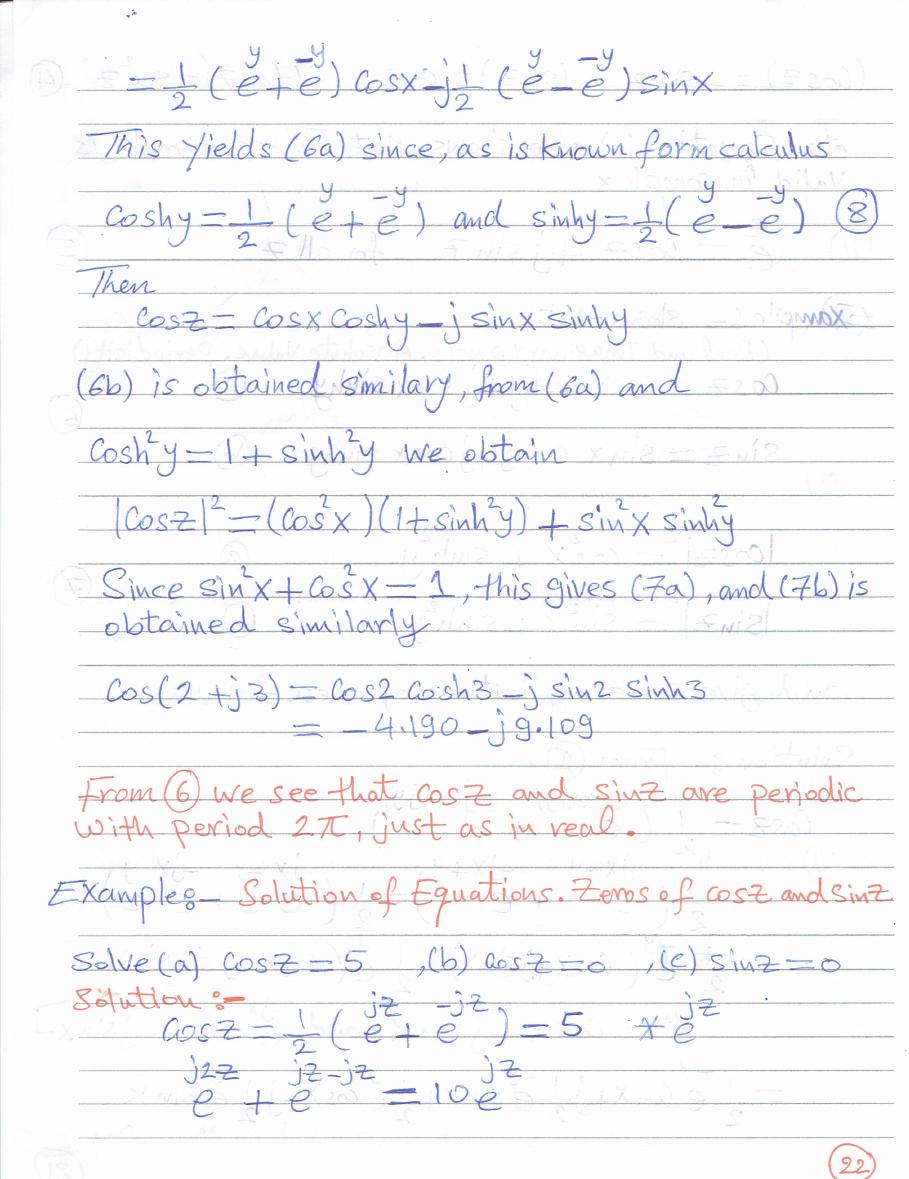 = 1/2 (e^y + e^-y) cosx - j 1/2 (e^y - e^-y) sinx
This yields (6a) since, as is known form calculus
Coshy = 1/2 (e^y + e^-y) and sinhy = 1/2 (e^y - e^-y) ⑧
Then
Cosz = Cosx Coshy - j sinx sinhy
(6b) is obtained similary, from (6a) and
Cosh²y = 1 + sinh²y we obtain
|Cosz|² = (Cos²x)(1 + sinh²y) + sin²x sinh²y
Since sin²x + Cos²x = 1, this gives (7a), and (7b) is
obtained similarly
Cos(2 + j3) = Cos2 Cosh3 - j sin2 Sinh3
= -4.190 - j9.109
From ⑥ we see that cosz and sinz are periodic
with period 2π, just as in real.
Example:- Solution of Equations. Zeros of cosz and Sinz
Solve (a) Cosz = 5 , (b) cosz = 0 , (c) sinz = 0
Solution :-
Cosz = 1/2 (e^jz + e^-jz) = 5 * e^jz
e^j2z + e^jz-jz = 10 e^jz
22